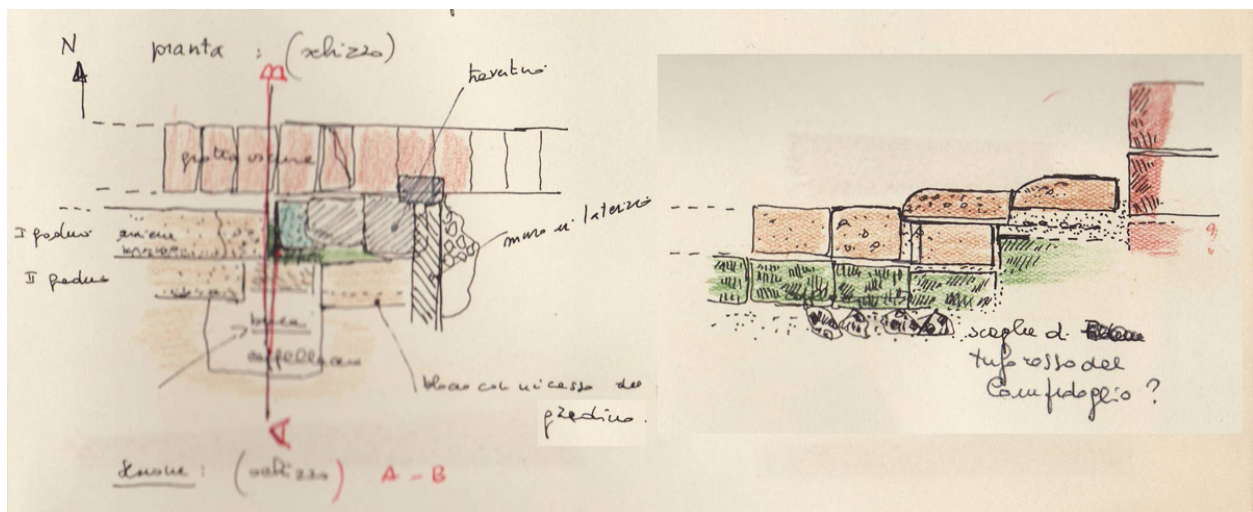 N
pianta : (schizzo)
B
travertino
grotta oscura
I gradino aniene
muro in laterizio
II gradino
buca
cappellaccio
blocco con incasso del
gradino.
A
Sezione : (schizzo) A - B
scaglie di
tufo rosso del
Campidoglio ?